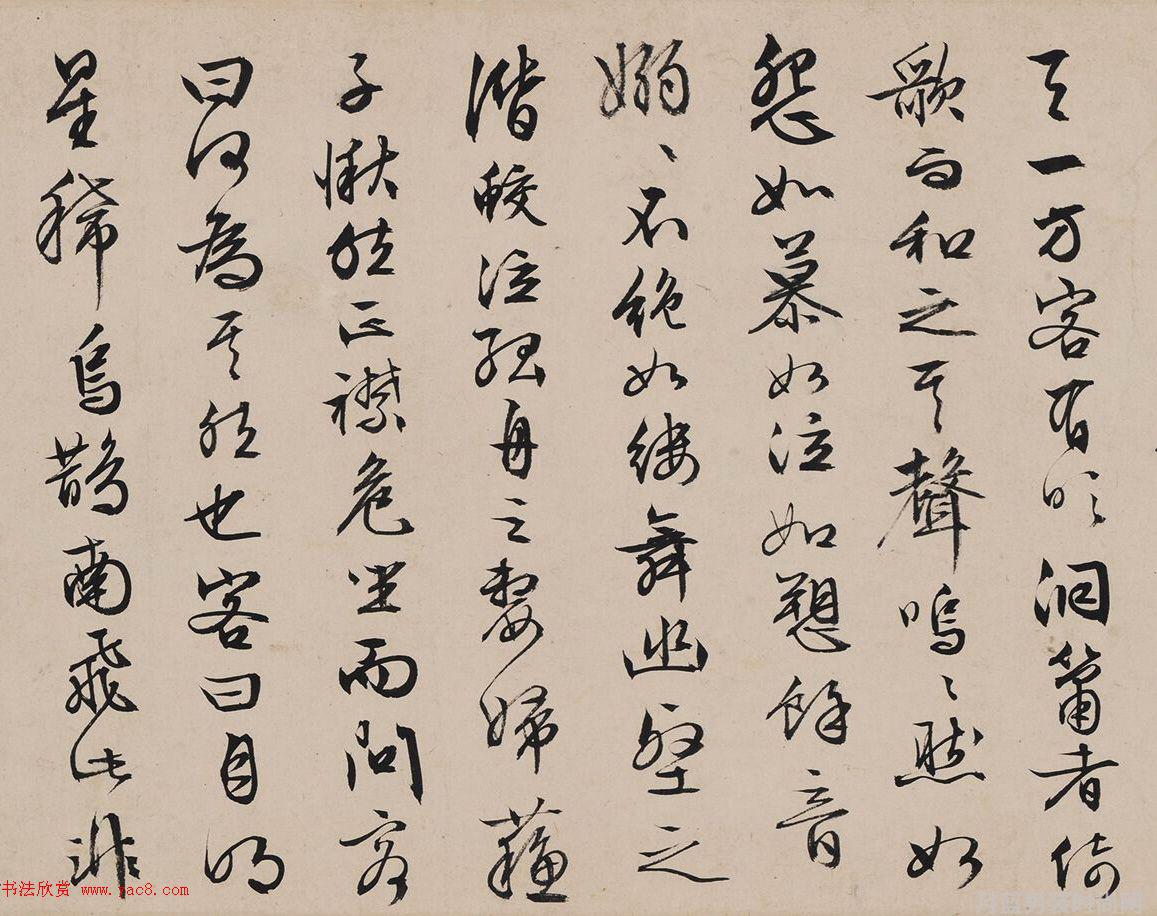 天一方客有吹洞簫者倚
歌而和之其聲嗚〻然如
怨如慕如泣如愬餘音
嫋〻不絕如縷舞幽壑之
潛蛟泣孤舟之嫠婦蘇
子愀然正襟危坐而問客
曰何為其然也客曰月明
星稀烏鵲南飛此非
书法欣赏 www.yac8.com